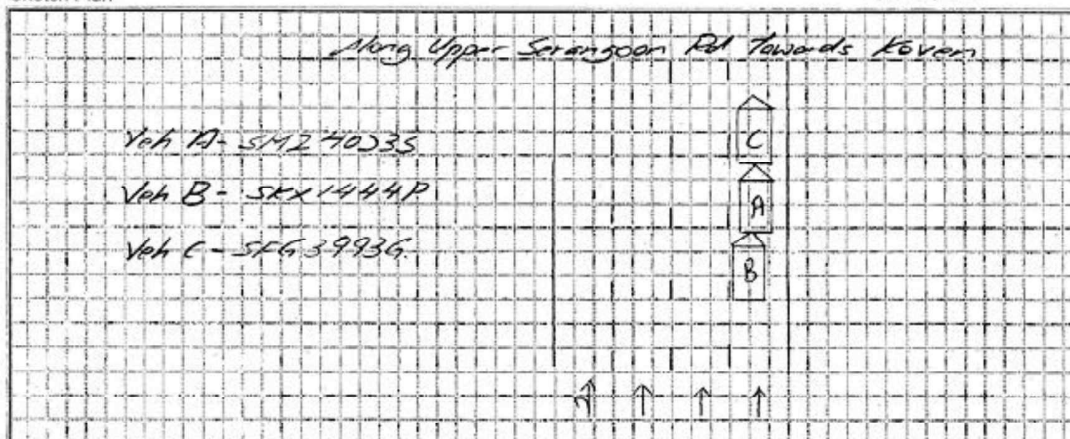 Along Upper Serangoon Rd Towards Koven
Veh A -
Veh B - SKX1444P
Veh C - SFG3993G
C
A
B